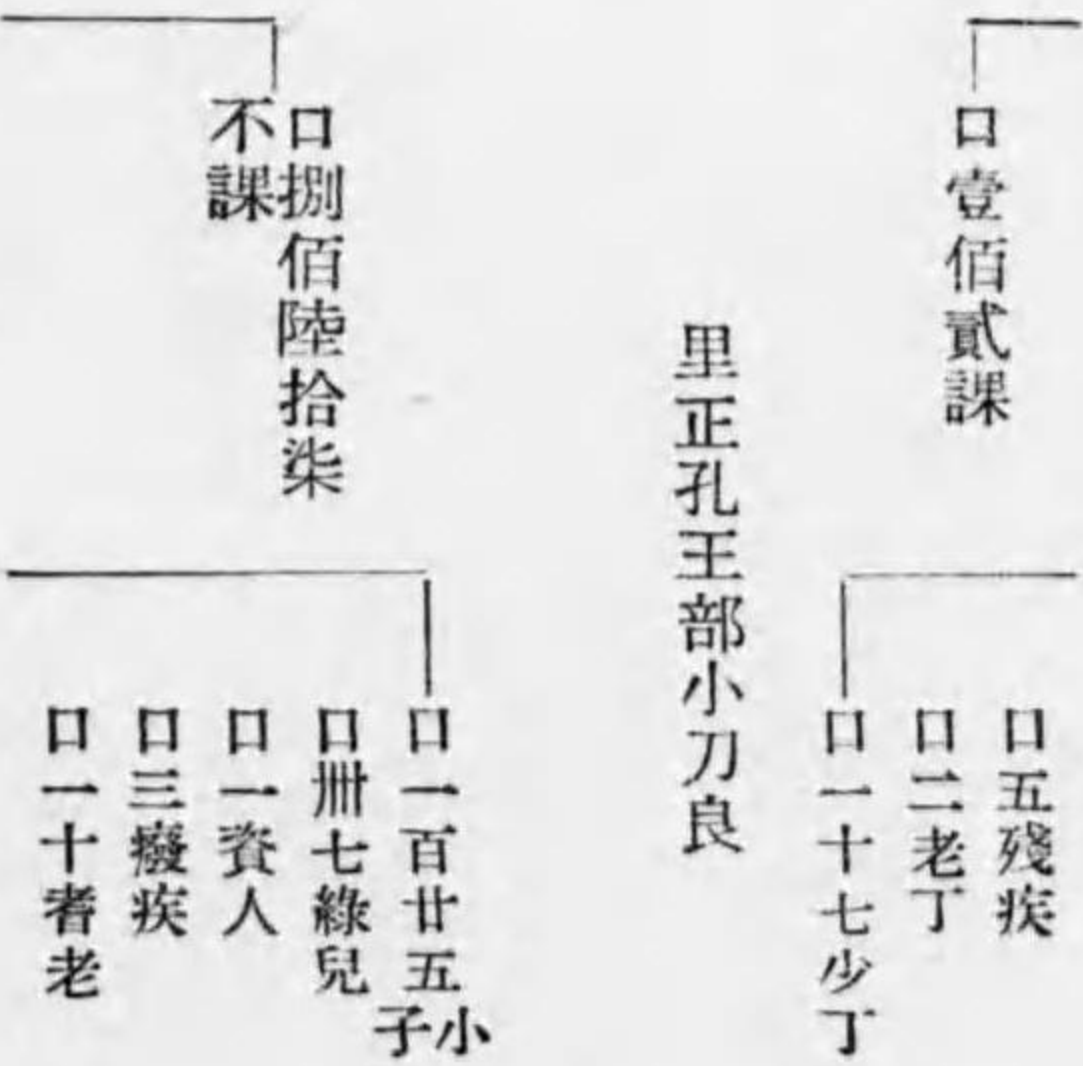 口壹佰貳課
口五殘疾
口二老丁
口一十七少丁
里正孔王部小刀良
口捌佰陸拾柒
不課
口一百廿五小子
口卌七綠兒
口一資人
口三癈疾
口一十耆老